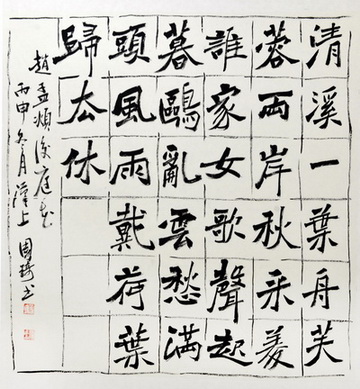 清溪一葉舟芙
蓉兩岸秋采菱
誰家女歌聲起
暮鷗亂雲愁滿
頭風雨戴荷葉
歸去休
趙孟頫後庭花
丙申冬月上書